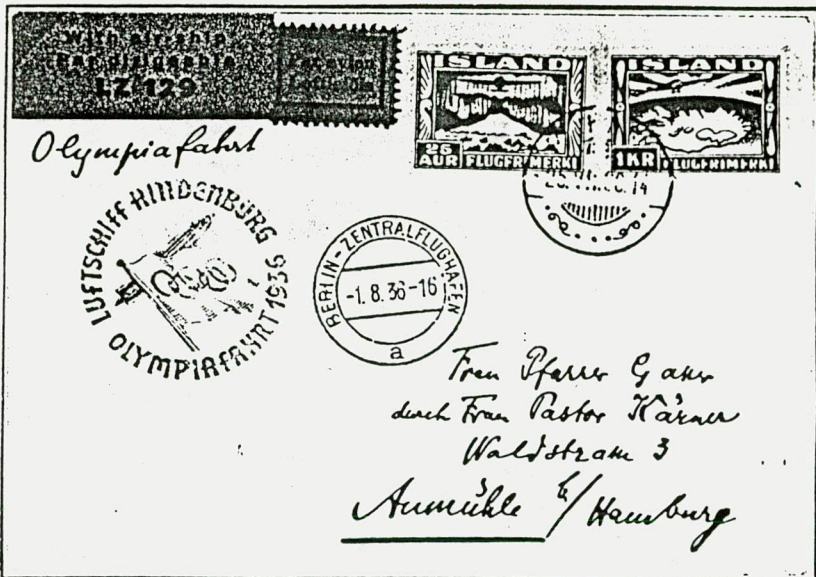 With air ship
Par dirigeable
LZ 129
Par avion
ISLAND
25
AUR FLUGFRIMERKI
ISLAND
1KR FLUGFRIMERKI
Olympiafahrt
LUFTSCHIFF HINDENBURG
OLYMPIAFAHRT 1936
BERLIN-ZENTRALFLUGHAFEN
-1.8.36-16
a
Frau Pfarrer
durch Frau Pastor Kärner
3
Aumühle b/Hamburg